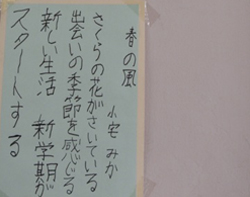 春の風
小宅みか
さくらの花がさいている
出会いの季節を感じる
新しい生活 新学期が
スタートする